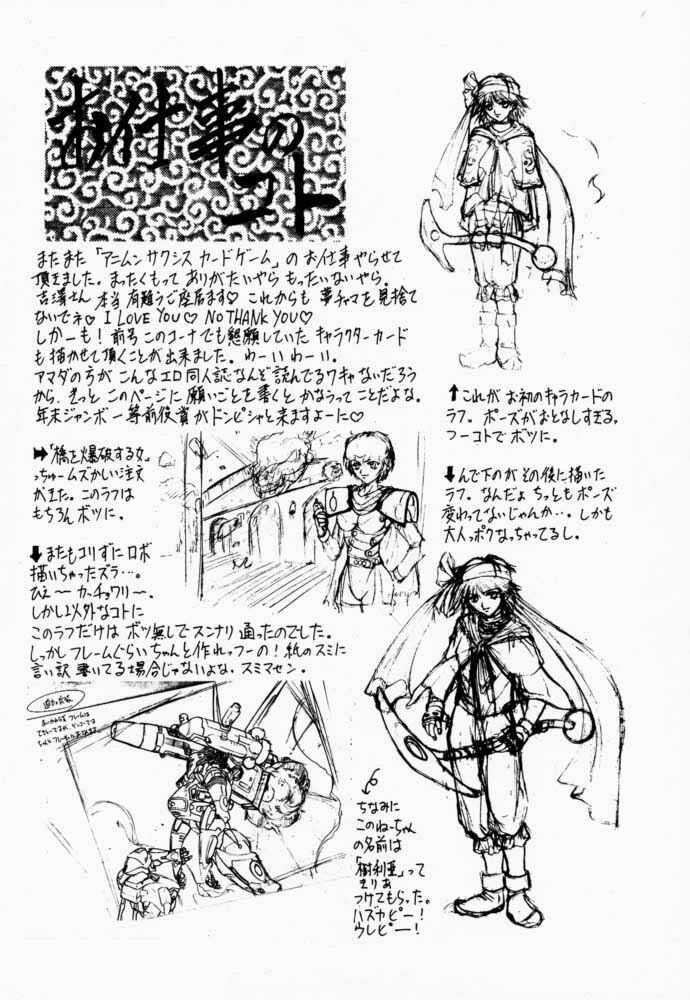 お仕事の
コト
またまた「アニムンサクシス カードゲーム」の お仕事やらせて
頂きました。まったくもって ありがたいやら もったいないやら。
吉濱さん 本当 有難うご座居ます♡ これからも 夢チャマを 見捨て
ないでネ♡ I LOVE YOU♡ NO THANK YOU♡
しかーも! 前号 このコーナでも懇願していた キャラクターカード
も描かせて頂くことが出来ました。わーい わーい。
アマダの方が こんな エロ同人誌なんぞ 読んでるワキャないだろう
から、きっと このページに 願いごとを書くと かなうってことだよな。
年末ジャンボー等前後賞がドンピシャと来ますよーに♡
➡「橋を爆破する女」
っちゅームズかしい注文
がきた。このラフは
もちろん ボツに。
⬇またもコリずに ロボ
描いちゃったズラ…。
ひえ〜 カッチョワリ〜。
しかし以外なコトに
このラフだけは ボツ無しで スンナリ 通ったのでした。
しっかしフレームぐらい ちゃんと 作れっつーの! 紙のスミに
言い訳 書いてる場合じゃないよな。スミマセン。
⬆これが お初のキャラカードの
ラフ。ポーズがおとなしすぎる。
フーコトでボツに。
⬇んで下のが その後に描いた
ラフ。なんだよ ちっともポーズ
変わってないじゃんか…。しかも
大人っポクなっちゃってるし。
ちなみに
このねーちゃん
の名前は
「樹利亜」って
きりあ
つけてもらった。
ハズカピー!
ウレピー!